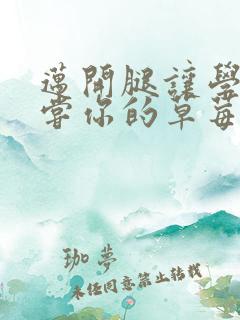 邁開腿讓學
嘗你的草莓
珈夢
未任同意禁止转载